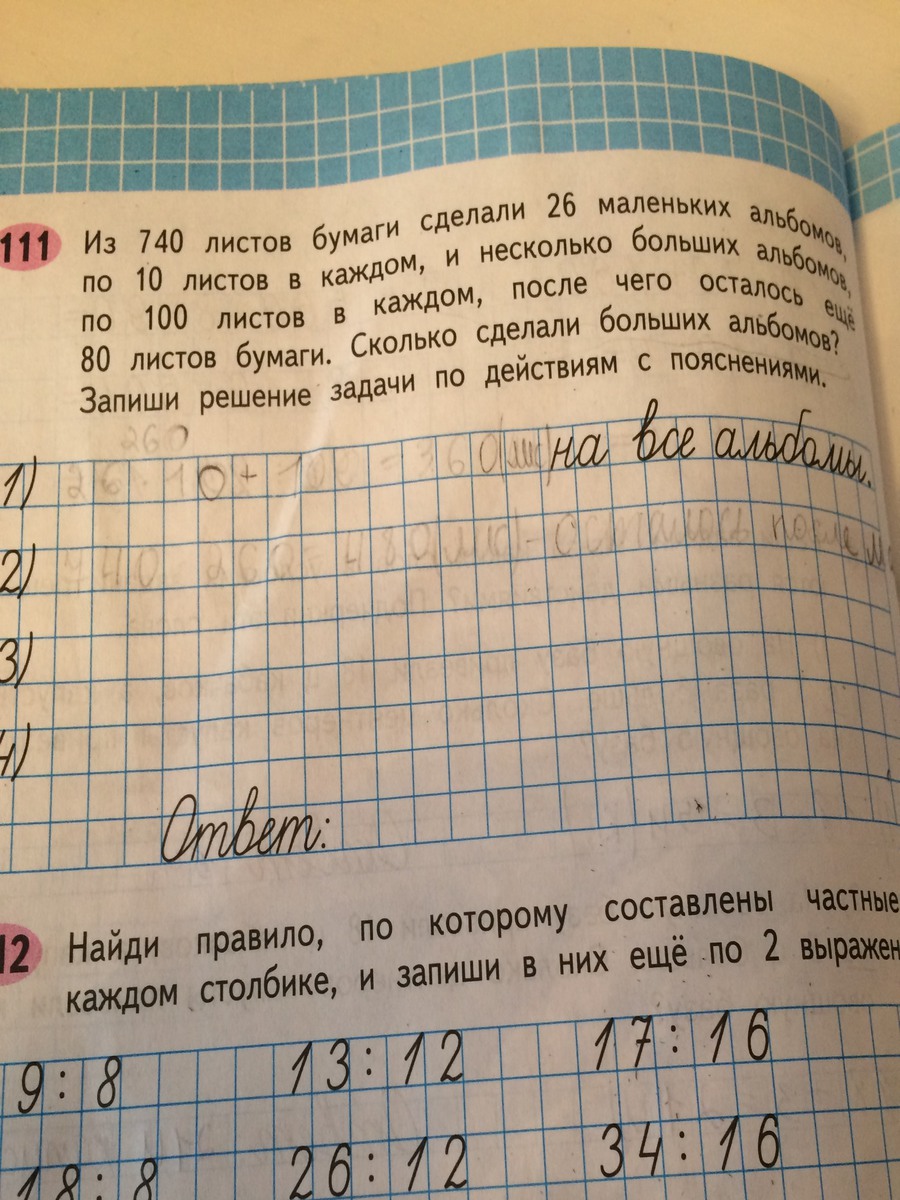 111 Из 740 листов бумаги сделали 26 маленьких альбомов,
по 10 листов в каждом, и несколько больших альбомов,
по 100 листов в каждом, после чего осталось ещё
80 листов бумаги. Сколько сделали больших альбомов?
Запиши решение задачи по действиям с пояснениями.
260
1) 26 · 10 + 100 = 360 (лис) на все альбомы.
2) 740 260 = 480 (лис) - осталось после
3)
4)
Ответ:
12 Найди правило, по которому составлены частные
каждом столбике, и запиши в них ещё по 2 выражен
9 : 8 13 : 12 17 : 16
18 : 8 26 : 12 34 : 16